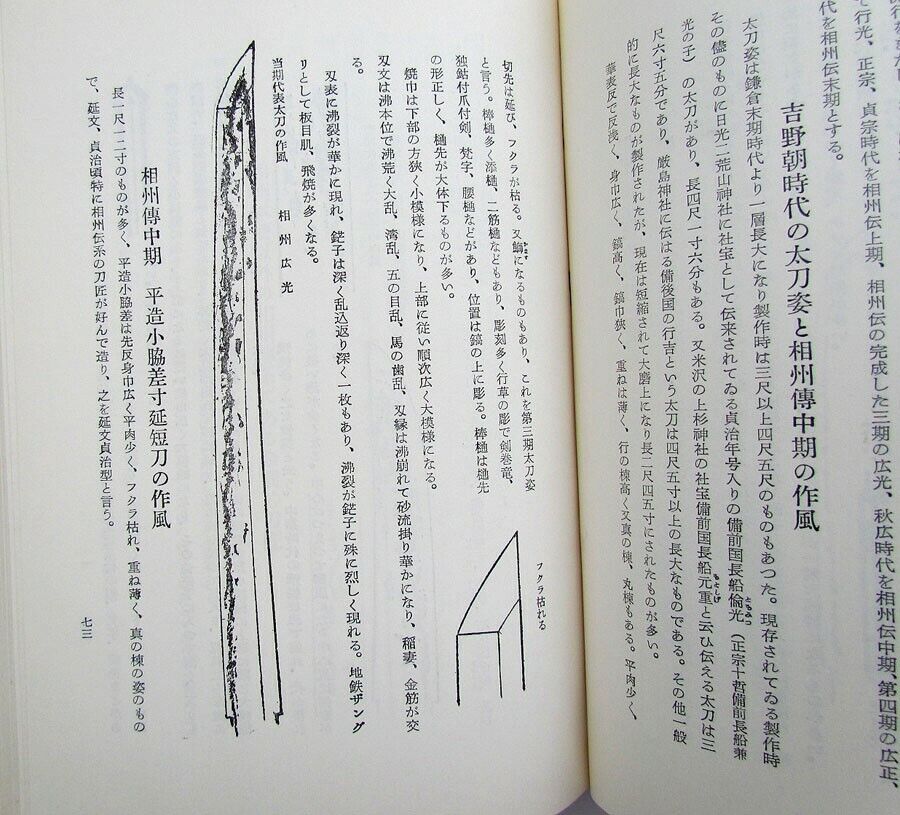 て行光、正宗、貞宗時代を相州伝上期、相州伝の完成した三期の広光、秋広時代を相州伝中期、第四期の広正、
代を相州伝末期とする。
吉野朝時代の太刀姿と相州傳中期の作風
太刀姿は鎌倉末期時代より一層長大になり製作時は三尺以上四尺五尺のものもあつた。現存されてゐる製作時
その儘のものに日光二荒山神社に社宝として伝来されてゐる貞治年号入りの備前国長船倫光（正宗十哲備前長船兼
光の子）の太刀があり、長四尺一寸六分もある。又米沢の上杉神社の社宝備前国長船元重と云ひ伝える太刀は三
尺六寸五分であり、厳島神社に伝はる備後国の行吉という太刀は四尺五寸以上の長大なものである。その他一般
的に長大なものが製作されたが、現在は短縮されて大磨上になり長二尺四五寸にされたものが多い。
華表反で反浅く、身巾広く、鎬高く、鎬巾狭く、重ねは薄く、行の棟高く又真の棟、丸棟もある。平肉少く
切先は延び、フクラが枯る。又鋒になるものもあり、これを第三期太刀姿
と言う。棒樋多く添樋、二筋樋などもあり、彫刻多く行草の彫で剣巻竜、
独鈷付爪付剣、梵字、腰樋などがあり、位置は鎬の上に彫る。棒樋は樋先
の形正しく、樋先が大体下るものが多い。
フクラ枯れる
焼巾は下部の方狭く小模様になり、上部に従い順次広く大模様になる。
刄文は沸本位で沸荒く大乱、湾乱、五の目乱、馬の歯乱、刄縁は沸崩れて砂流掛り華かになり、稲妻、金筋が交
る。
刄表に沸裂が華かに現れ、鋩子は深く乱込返り深く一枚もあり、沸裂が鋩子に殊に烈しく現れる。地鉄ザング
リとして板目肌、飛焼が多くなる。
当期代表太刀の作風　相州広光
相州傳中期　平造小脇差寸延短刀の作風
長一尺一二寸のものが多く、平造小脇差は先反身巾広く平肉少く、フクラ枯れ、重ね薄く、真の棟の姿のもの
で、延文、貞治頃特に相州伝系の刀匠が好んで造り、之を延文貞治型と言う。
七三